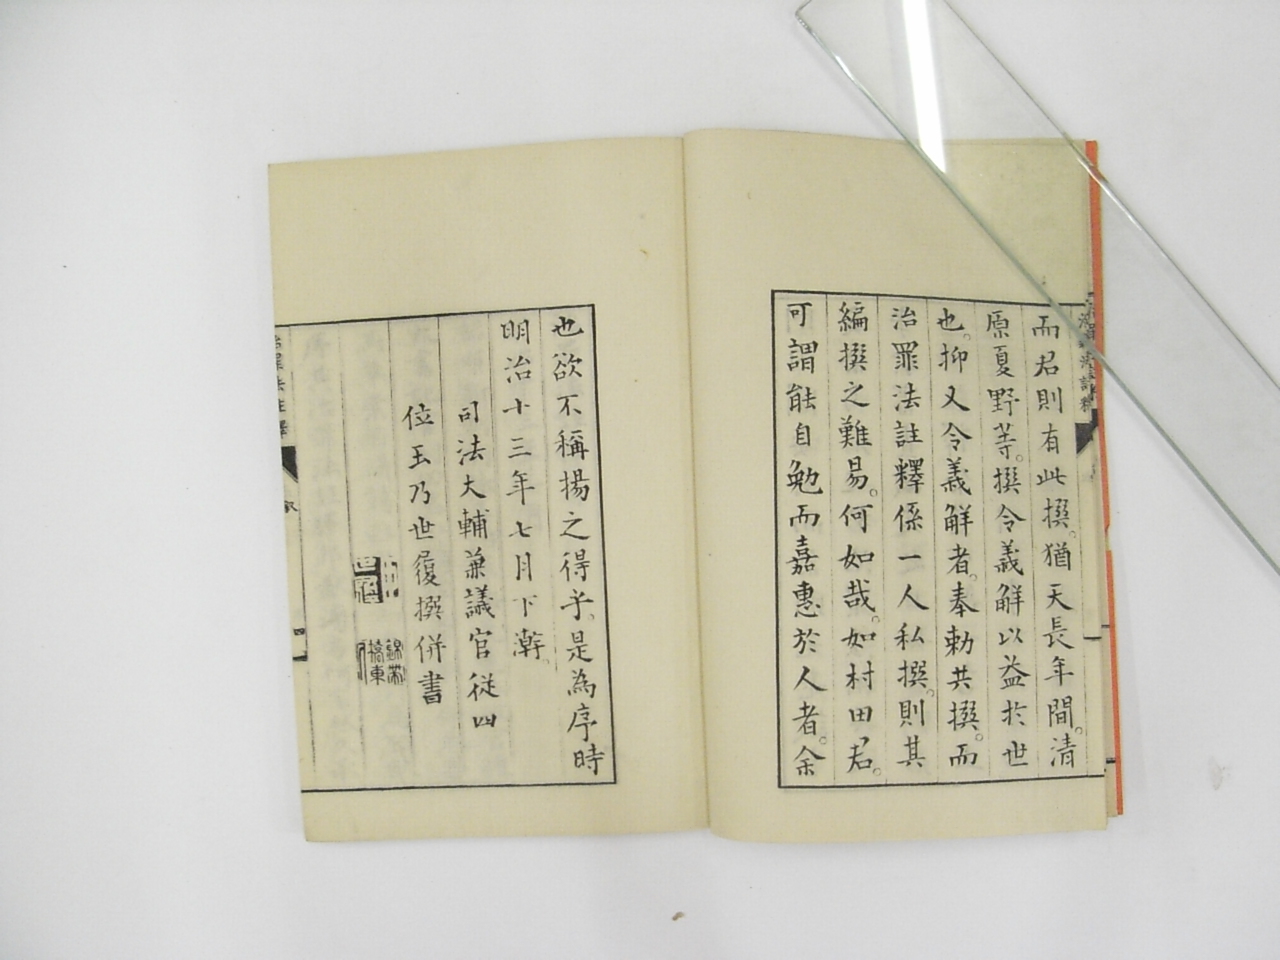 而君則有此撰。猶天長年間。清
原夏野等。撰令義解以益於世
也。抑又令義解者。奉勅共撰。而
治罪法註釋係一人私撰。則其
編撰之難易。何如哉。如村田君。
可謂能自勉而嘉惠於人者。余
也欲不稱揚之得乎。是為序時
明治十三年七月下澣。
司法大輔兼議官従四
位玉乃世履撰併書
治罪法註釋
叙